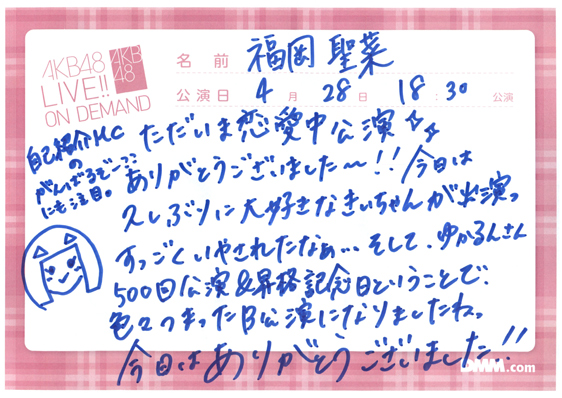 AKB48
LIVE!!
ON DEMAND
AKB
48
名前 福岡 聖菜
公演日 4月28日 18:30 公演
自己紹介MC
の
がんばるぞー??
にも注目。
ただいま恋愛中公演☆☆
ありがとうございました〜!! 今日は
久しぶりに大好きなきぃちゃんが出演っ
すっごくいやされたなぁ…そして、ゆかるんさん
500回公演&昇格記念日ということで、
色々つまったB公演になりましたねっ
今日はありがとうございました!!
DMM.com